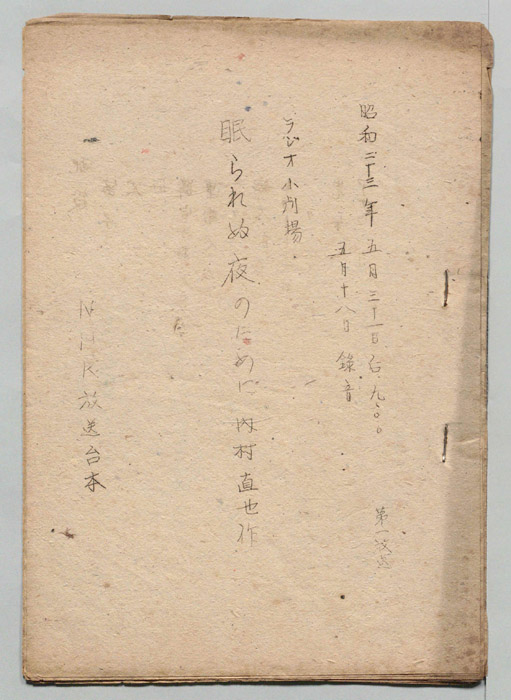 昭和二十三年 五月三十一日 后、九、〇〇
五月十八日 録音
第一放送
ラジオ小劇場
眠られぬ夜のために 内村直也作
NHK放送台本